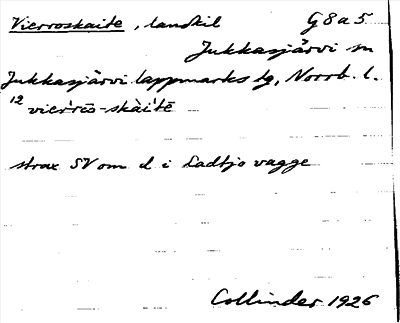 Vierroskaite, landskil G8a5
Jukkasjärvi sn
Jukkasjärvi lappmarks tg, Norrb. l.
12 vier̄rēo-skài'tē
strax SV om d i Ladtjo vagge
Collinder 1926